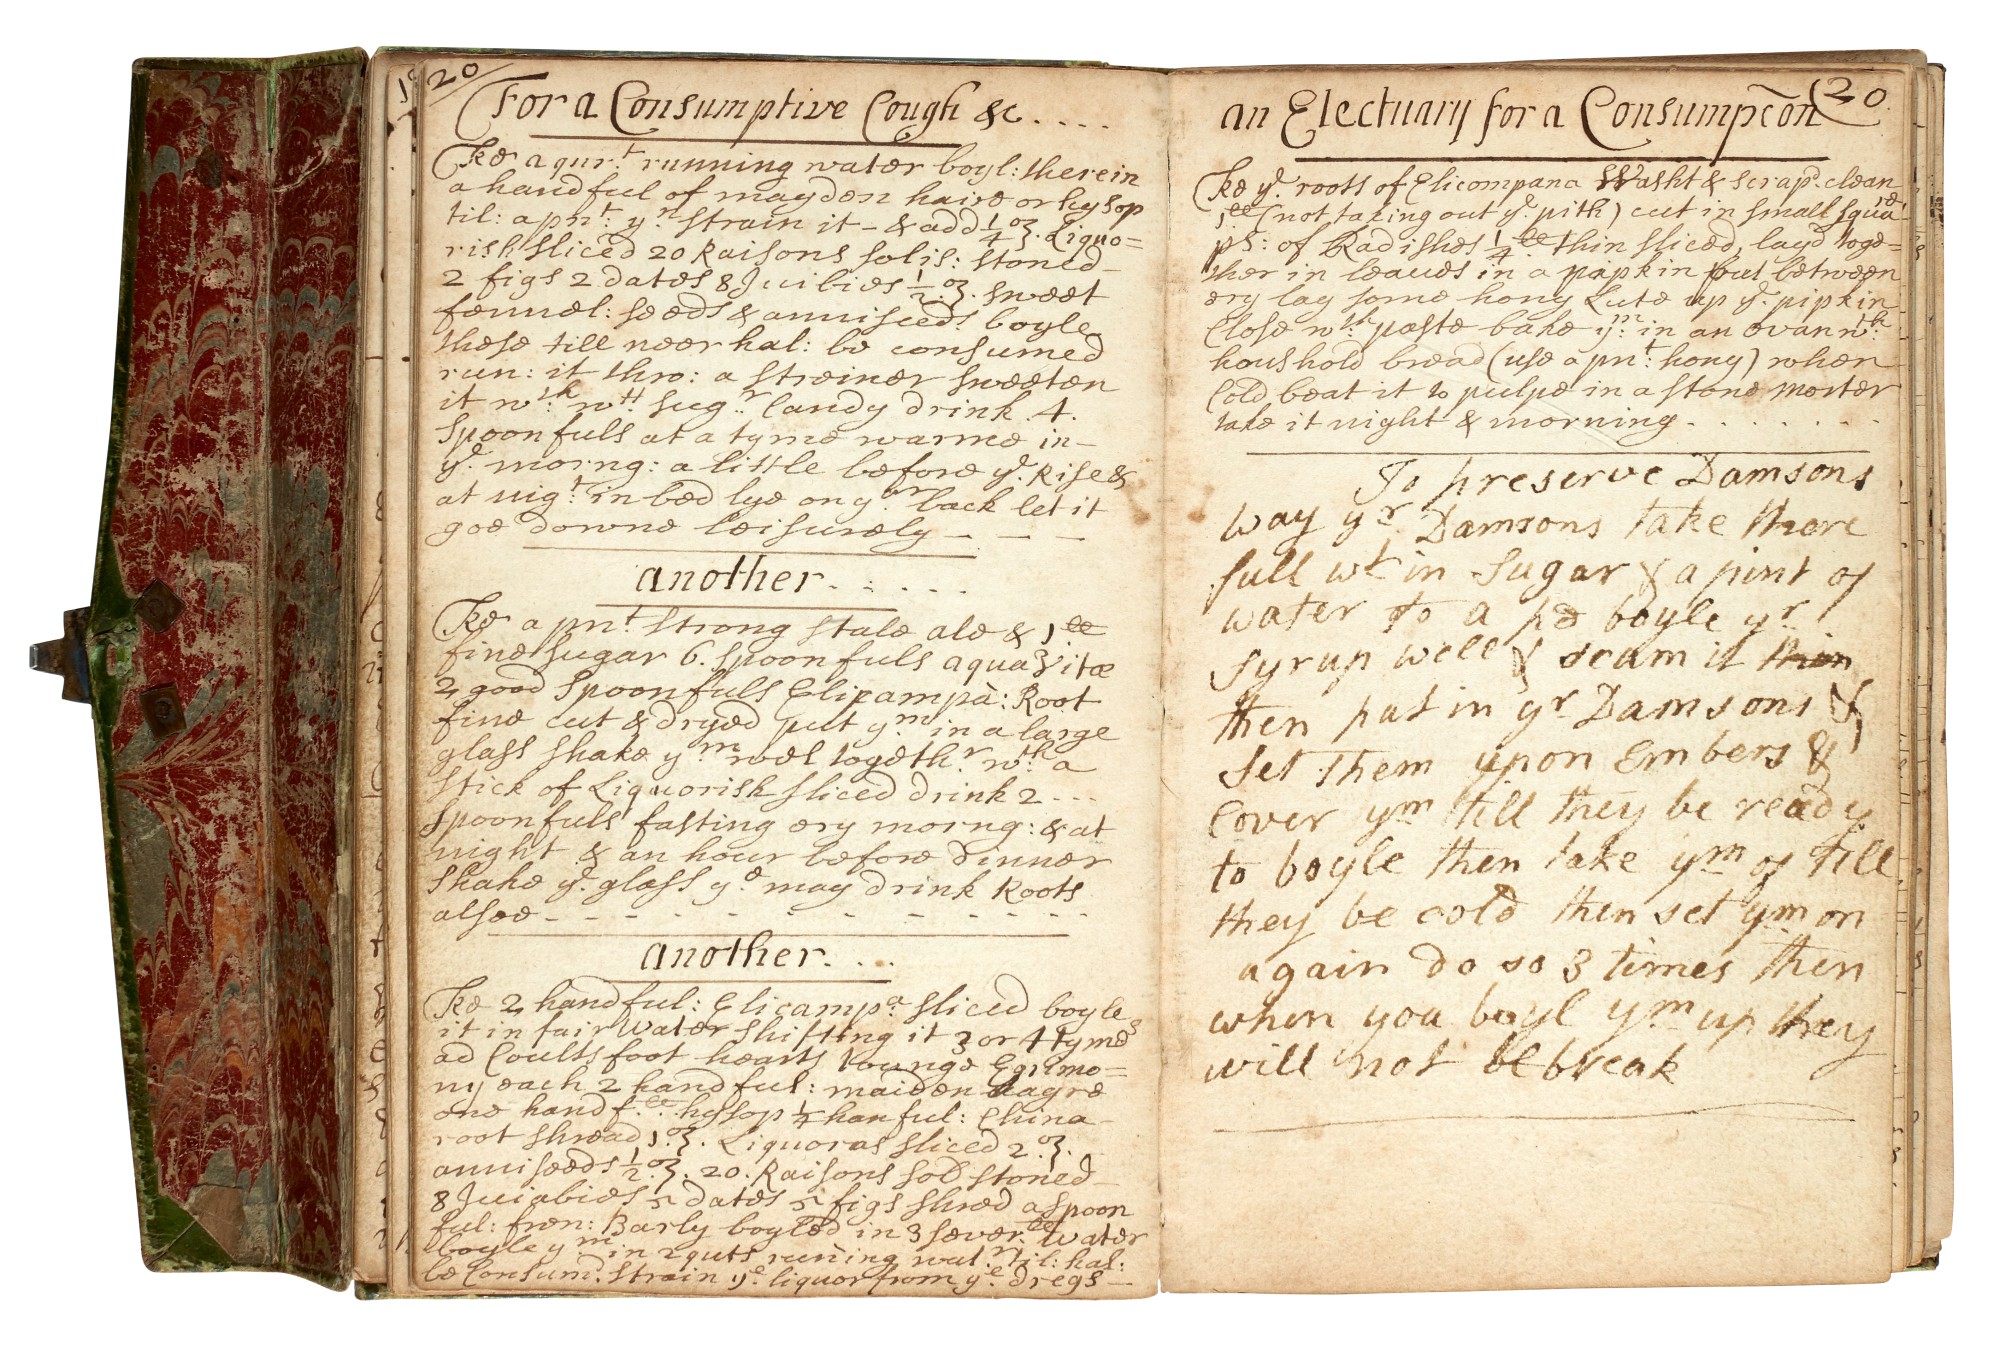 20
For a Consumptive Cough &c....
Tke a qurt running water boyl: therein
a handful of mayden haire or hysop
til: a pnt: yn strain it - & add 1/4 oz. Liquo=
rish sliced 20 Raisons solis: stoned
2 figs 2 dates 8 Juibies 1/2 oz. sweet
fennel: seeds & anniseeds boyle
these till neer hal: be consumed
run: it thro: a streiner sweeten
it wth: wtt sugr Candy drink 4.
spoonfuls at a tyme warme in-
ye morng: a little before ye Rise &
at nigt: in bed lye on yor back let it
goe downe leisurely - - -
another.....
Tke a pnt strong stale ale & 1 ll
fine sugar 6. spoonfuls aqua vitæ
2 good spoonfuls Elicampa: Root
fine cut & dryed put ym in a large
glass shake ym wel togethr wth a
stick of Liquorish sliced drink 2 ---
spoonfuls fasting ery morng: & at
night & an hour before dinner
shake ye glass ye may drink Roots
alsoe - - - - - - - - - -
another...
Tke 2 handful: Elicampa sliced boyle
it in fair water shifting it 3 or 4 tymes
ad Coultsfoot hearts lounge Egrimo=
ny each 2 handful: maiden hayre
one handfll: hysop 1/4 hanful: China
root shread 1 oz. Liquoras sliced 2 oz.
anniseeds 1/2 oz. 20. Raisons sol stoned
8 Juiabies 5 dates 5 figs shred a spoon
ful: fren: Barly boyled in 3 severll water
boyle ym in 2 quts runing watr: til: hal:
be Consum: strain ye liquor from ye dregs -
(20
an Electuary for a Consumpcõn
Tke ye roots of Elicompana Washt & scrapd. clean
1 ll (not taking out ye pith) cut in small squa
ps: of Radishes 1/4 ll thin sliced, layd toge=
ther in leaues in a pipkin but between
ery lay some hony Lute up ye pipkin
Close wth paste bake ym in an ovan wth
houshold bread (use a pnt: hony) when
Cold beat it to pulpe in a stone morter
take it night & morning.......
To preserve Damsons
way yr Damsons take there
full wt in sugar & a pint of
water to a pd boyle yr
syrup well & scum it
then put in yr Damsons &
set them upon Embers &
Cover ym till they be ready
to boyle then take ym of till
they be cold then set ym on
again do so 3 times then
when you boyl ym up they
will not break